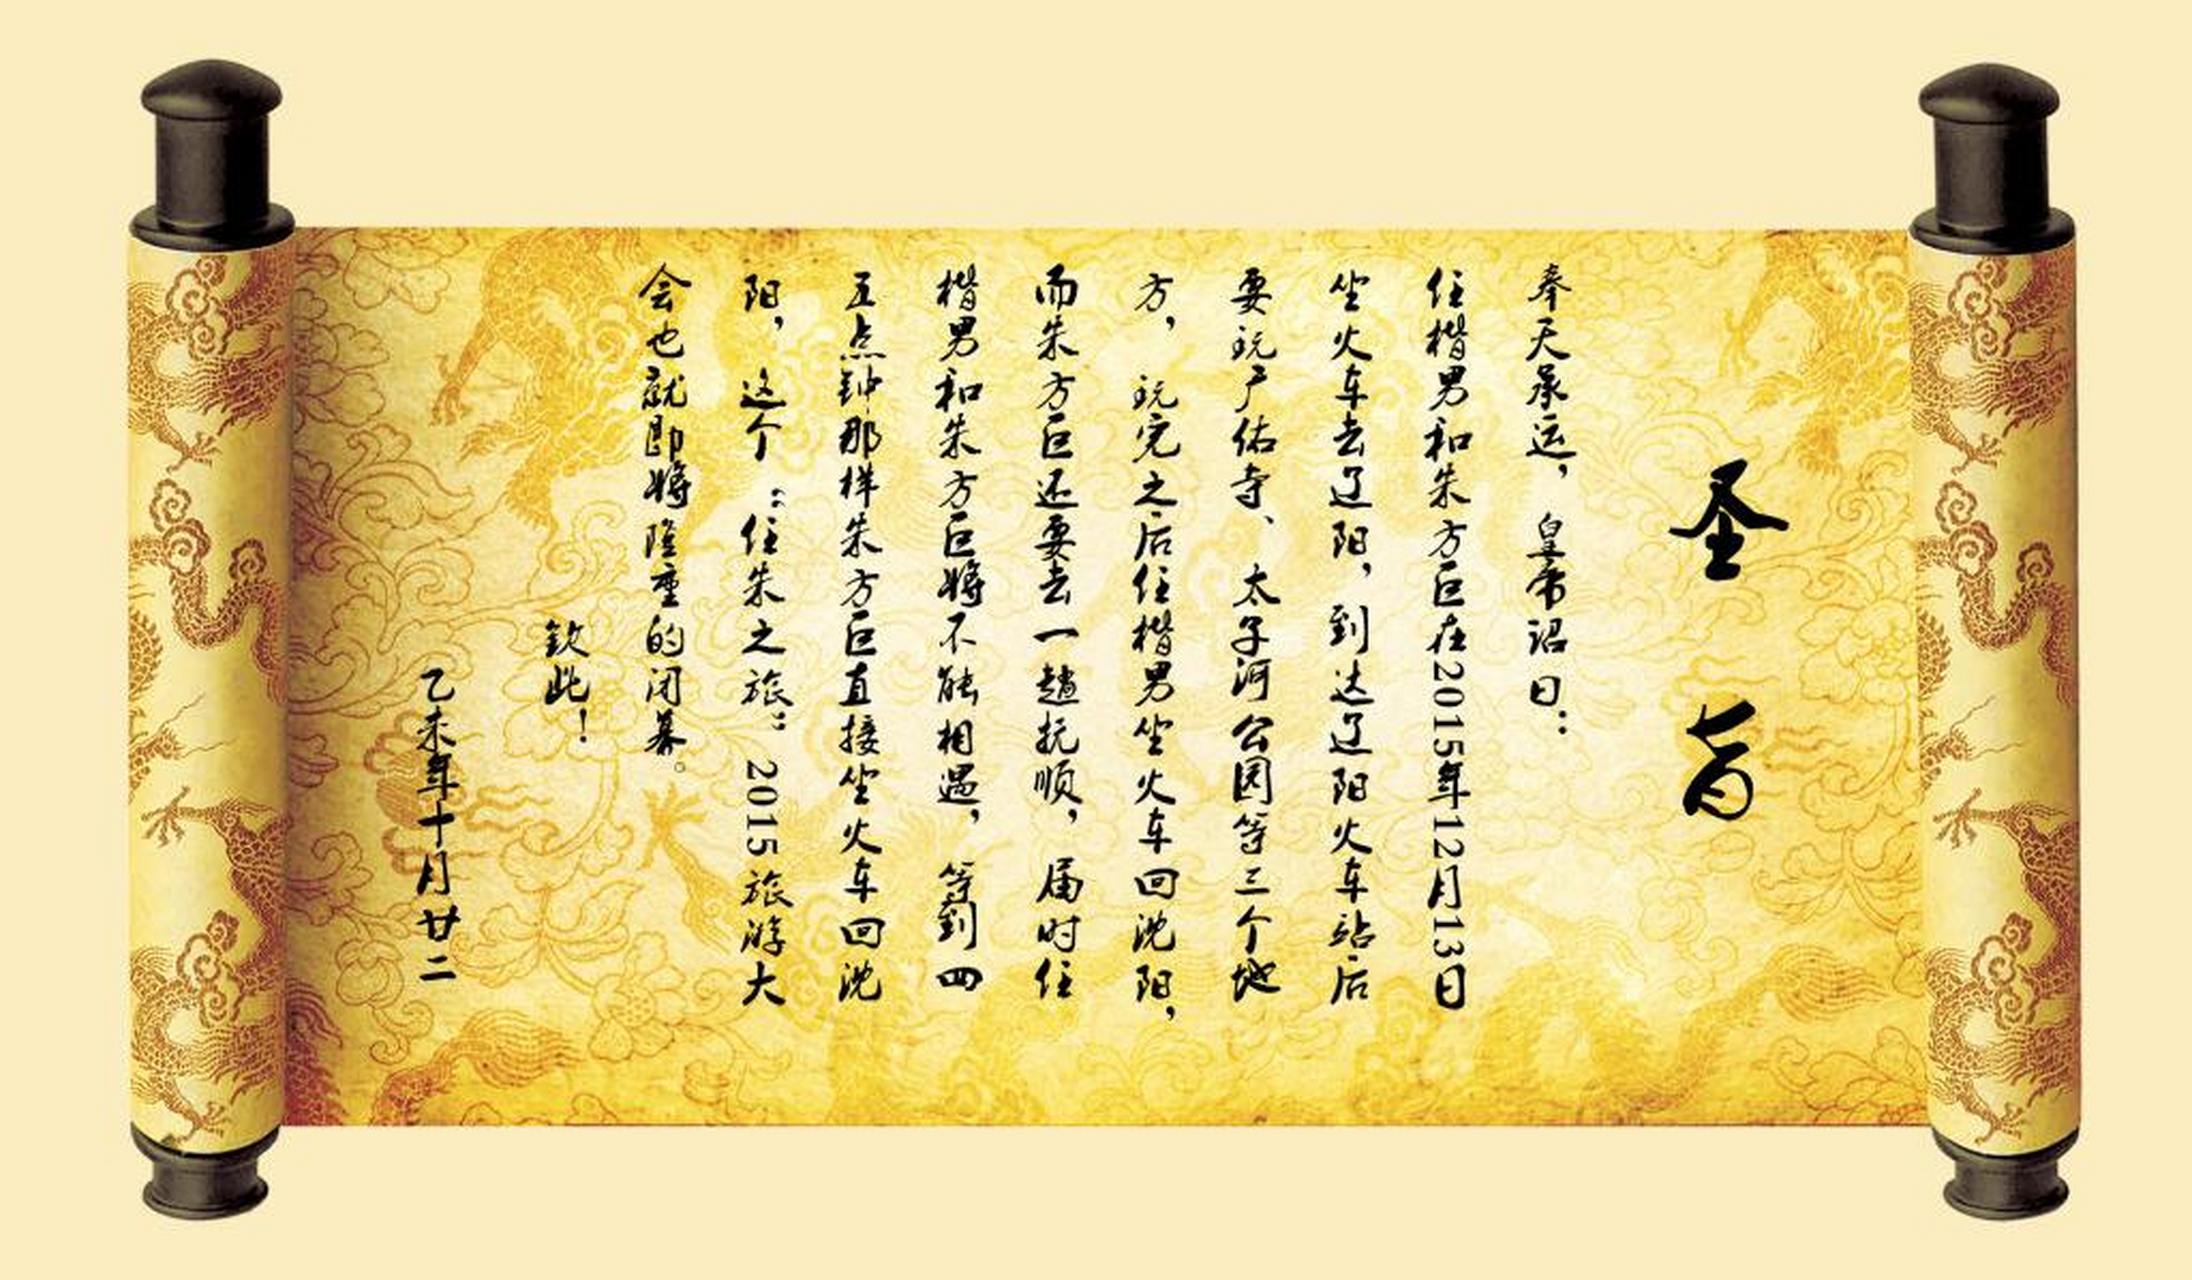 圣旨
奉天承运，皇帝诏曰：
任楷男和朱方巨在2015年12月13日
坐火车去辽阳，到达辽阳火车站后
要玩广佑寺、太子河公园等三个地
方，玩完之后任楷男坐火车回沈阳，
而朱方巨还要去一趟抚顺，届时任
楷男和朱方巨将不能相遇，等到四
五点钟那样朱方巨直接坐火车回沈
阳，这个“任朱之旅”2015旅游大
会也就即将隆重的闭幕。
钦此！
乙未年十月廿二